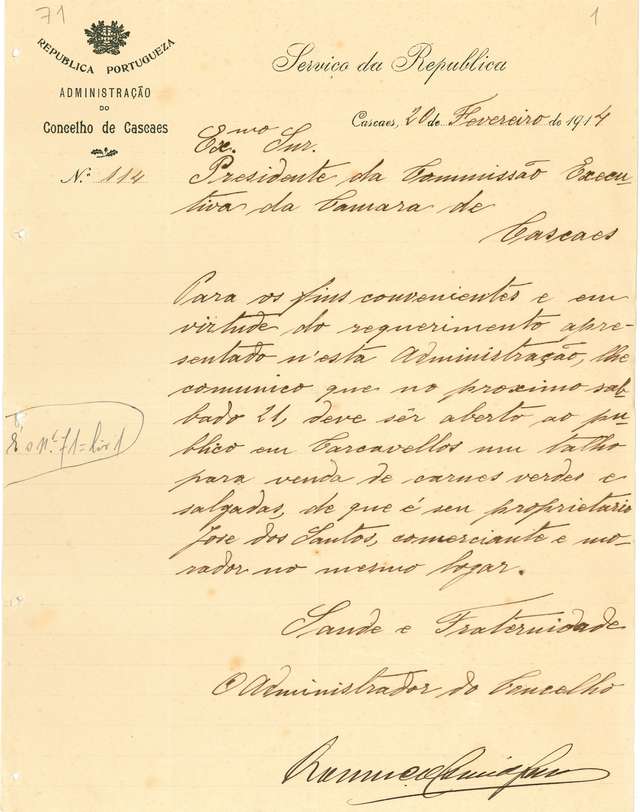 71
1
REPUBLICA PORTUGUEZA
ADMINISTRAÇÃO
DO
Concelho de Cascaes
N.º 114
Serviço da Republica
Cascaes, 20 de Fevereiro de 1914
Ex.mo Snr.
Presidente da Commissão Execu-
tiva da Camara de
Cascaes
Para os fins convenientes e em
virtude do requerimento apre-
sentado n'esta Administração, lhe
comunico que no proximo sab-
bado 21, deve sêr aberto ao pu-
blico em Carcavellos um talho
para venda de carnes verdes e
salgadas, de que é seu proprietario
José dos Santos, comerciante e mo-
rador no mesmo logar.
É o N.º 71 = Liv 1
Saude e Fraternidade
O Administrador do Concelho